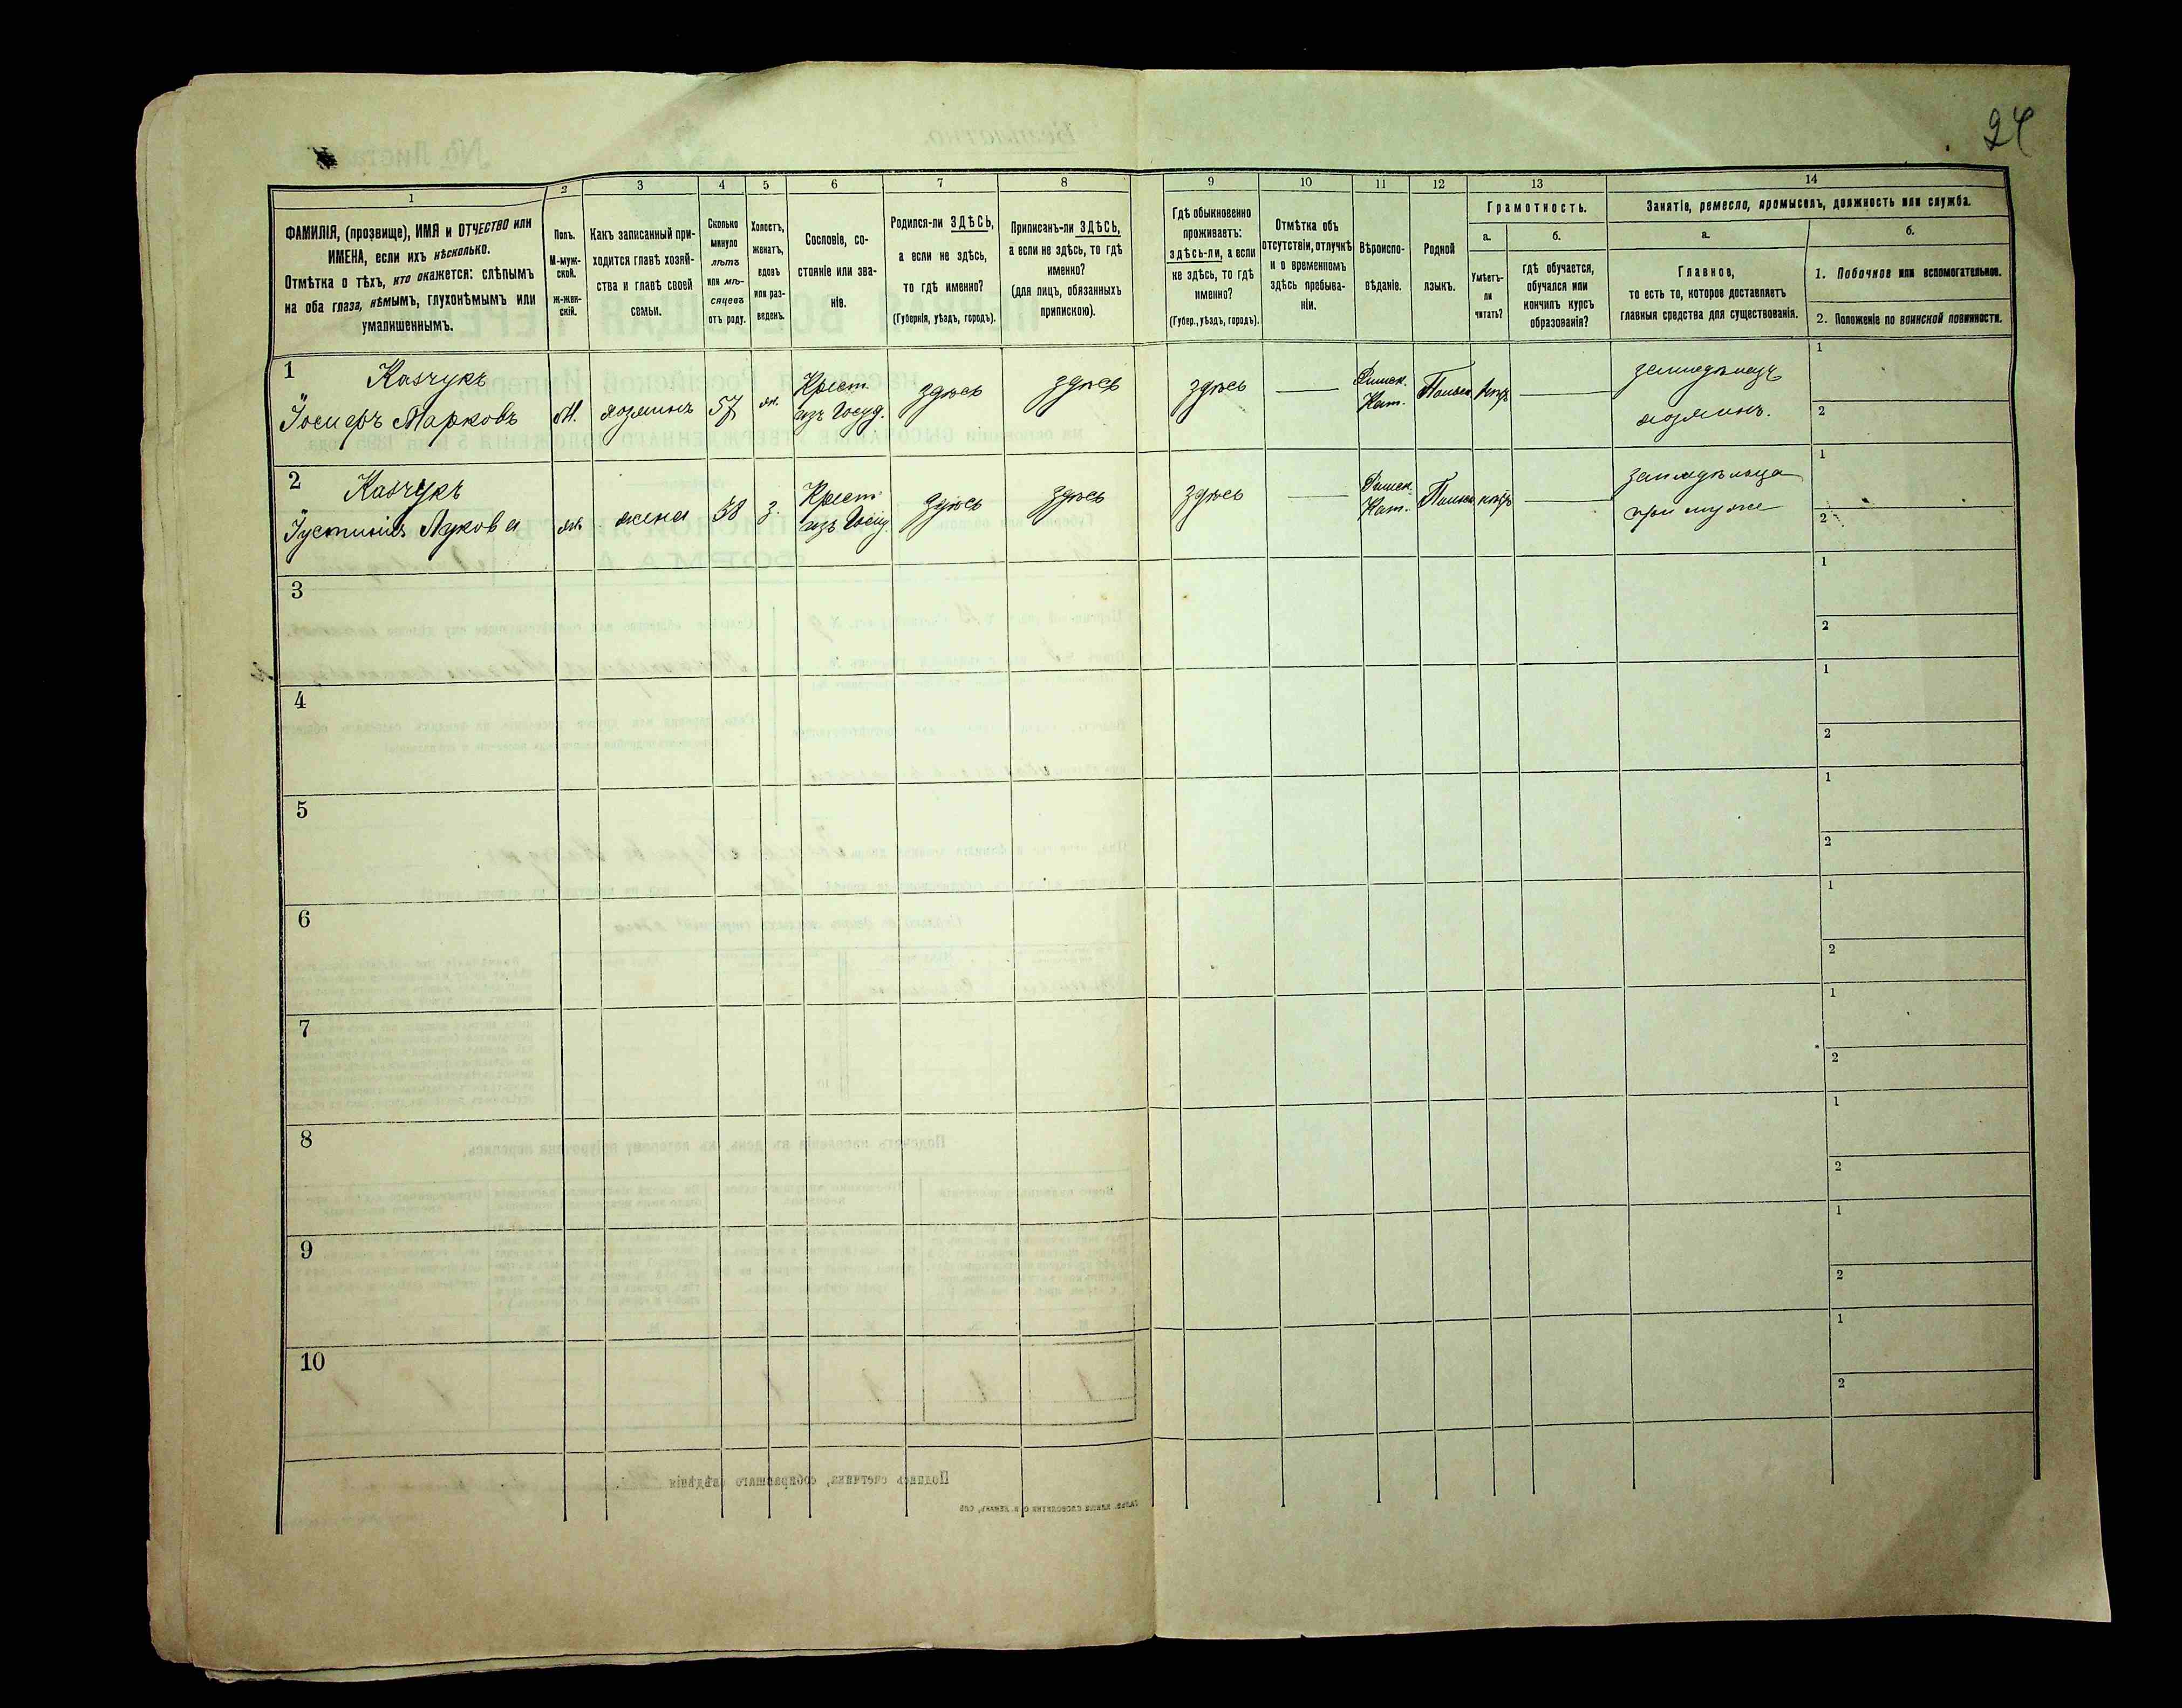 24
1
2
3
4
5
6
7
8
9
10
11
12
13
14
ФАМИЛІЯ, (прозвище), ИМЯ и ОТЧЕСТВО или
ИМЕНА, если ихъ нѣсколько.
Отмѣтка о тѣхъ, кто окажется: слѣпымъ
на оба глаза, нѣмымъ, глухонѣмымъ или
умалишеннымъ.
Полъ.
М-муж-
ской.
ж-жен-
скій.
Какъ записанный при-
ходится главѣ хозяй-
ства и главѣ своей
семьи.
Сколько
минуло
лѣтъ
или мѣ-
сяцевъ
отъ роду.
Холостъ,
женатъ,
вдовъ
или раз-
веденъ.
Сословіе, со-
стояніе или зва-
ніе.
Родился-ли ЗДѢСЬ,
а если не здѣсь,
то гдѣ именно?
(Губернія, уѣздъ, городъ).
Приписанъ-ли ЗДѢСЬ,
а если не здѣсь, то гдѣ
именно?
(для лицъ, обязанныхъ
припискою).
Гдѣ обыкновенно
проживаетъ:
здѣсь-ли, а если
не здѣсь, то гдѣ
именно?
(Губер., уѣздъ, городъ).
Отмѣтка объ
отсутствіи, отлучкѣ
и о временномъ
здѣсь пребыва-
ніи.
Вѣроиспо-
вѣданіе.
Родной
языкъ.
Грамотность.
а.
Умѣетъ-
ли
читать?
б.
гдѣ обучается,
обучался или
кончилъ курсъ
образованія?
Занятіе, ремесло, промыселъ, должность или служба.
а.
Главное,
то есть то, которое доставляетъ
главныя средства для существованія.
б.
1. Побочное или вспомогательное.
2. Положеніе по воинской повинности.
1
Казчукъ
Іосифъ Марковъ
М.
хозяинъ
57
ж.
Крест.
изъ Госуд.
здѣсь
здѣсь
здѣсь
—
Римск.
Кат.
Польск.
нѣтъ
—
земледѣлецъ
хозяинъ.
1
2
2
Казчукъ
Іустинія Лукова
ж.
жена
58
з.
Крест.
изъ Госуд.
здѣсь
здѣсь
здѣсь
—
Римск.
Кат.
Польск.
нѣтъ
—
земледѣлица
при мужѣ
1
2
3
1
2
4
1
2
5
1
2
6
1
2
7
1
2
8
1
2
9
1
2
10
1
2